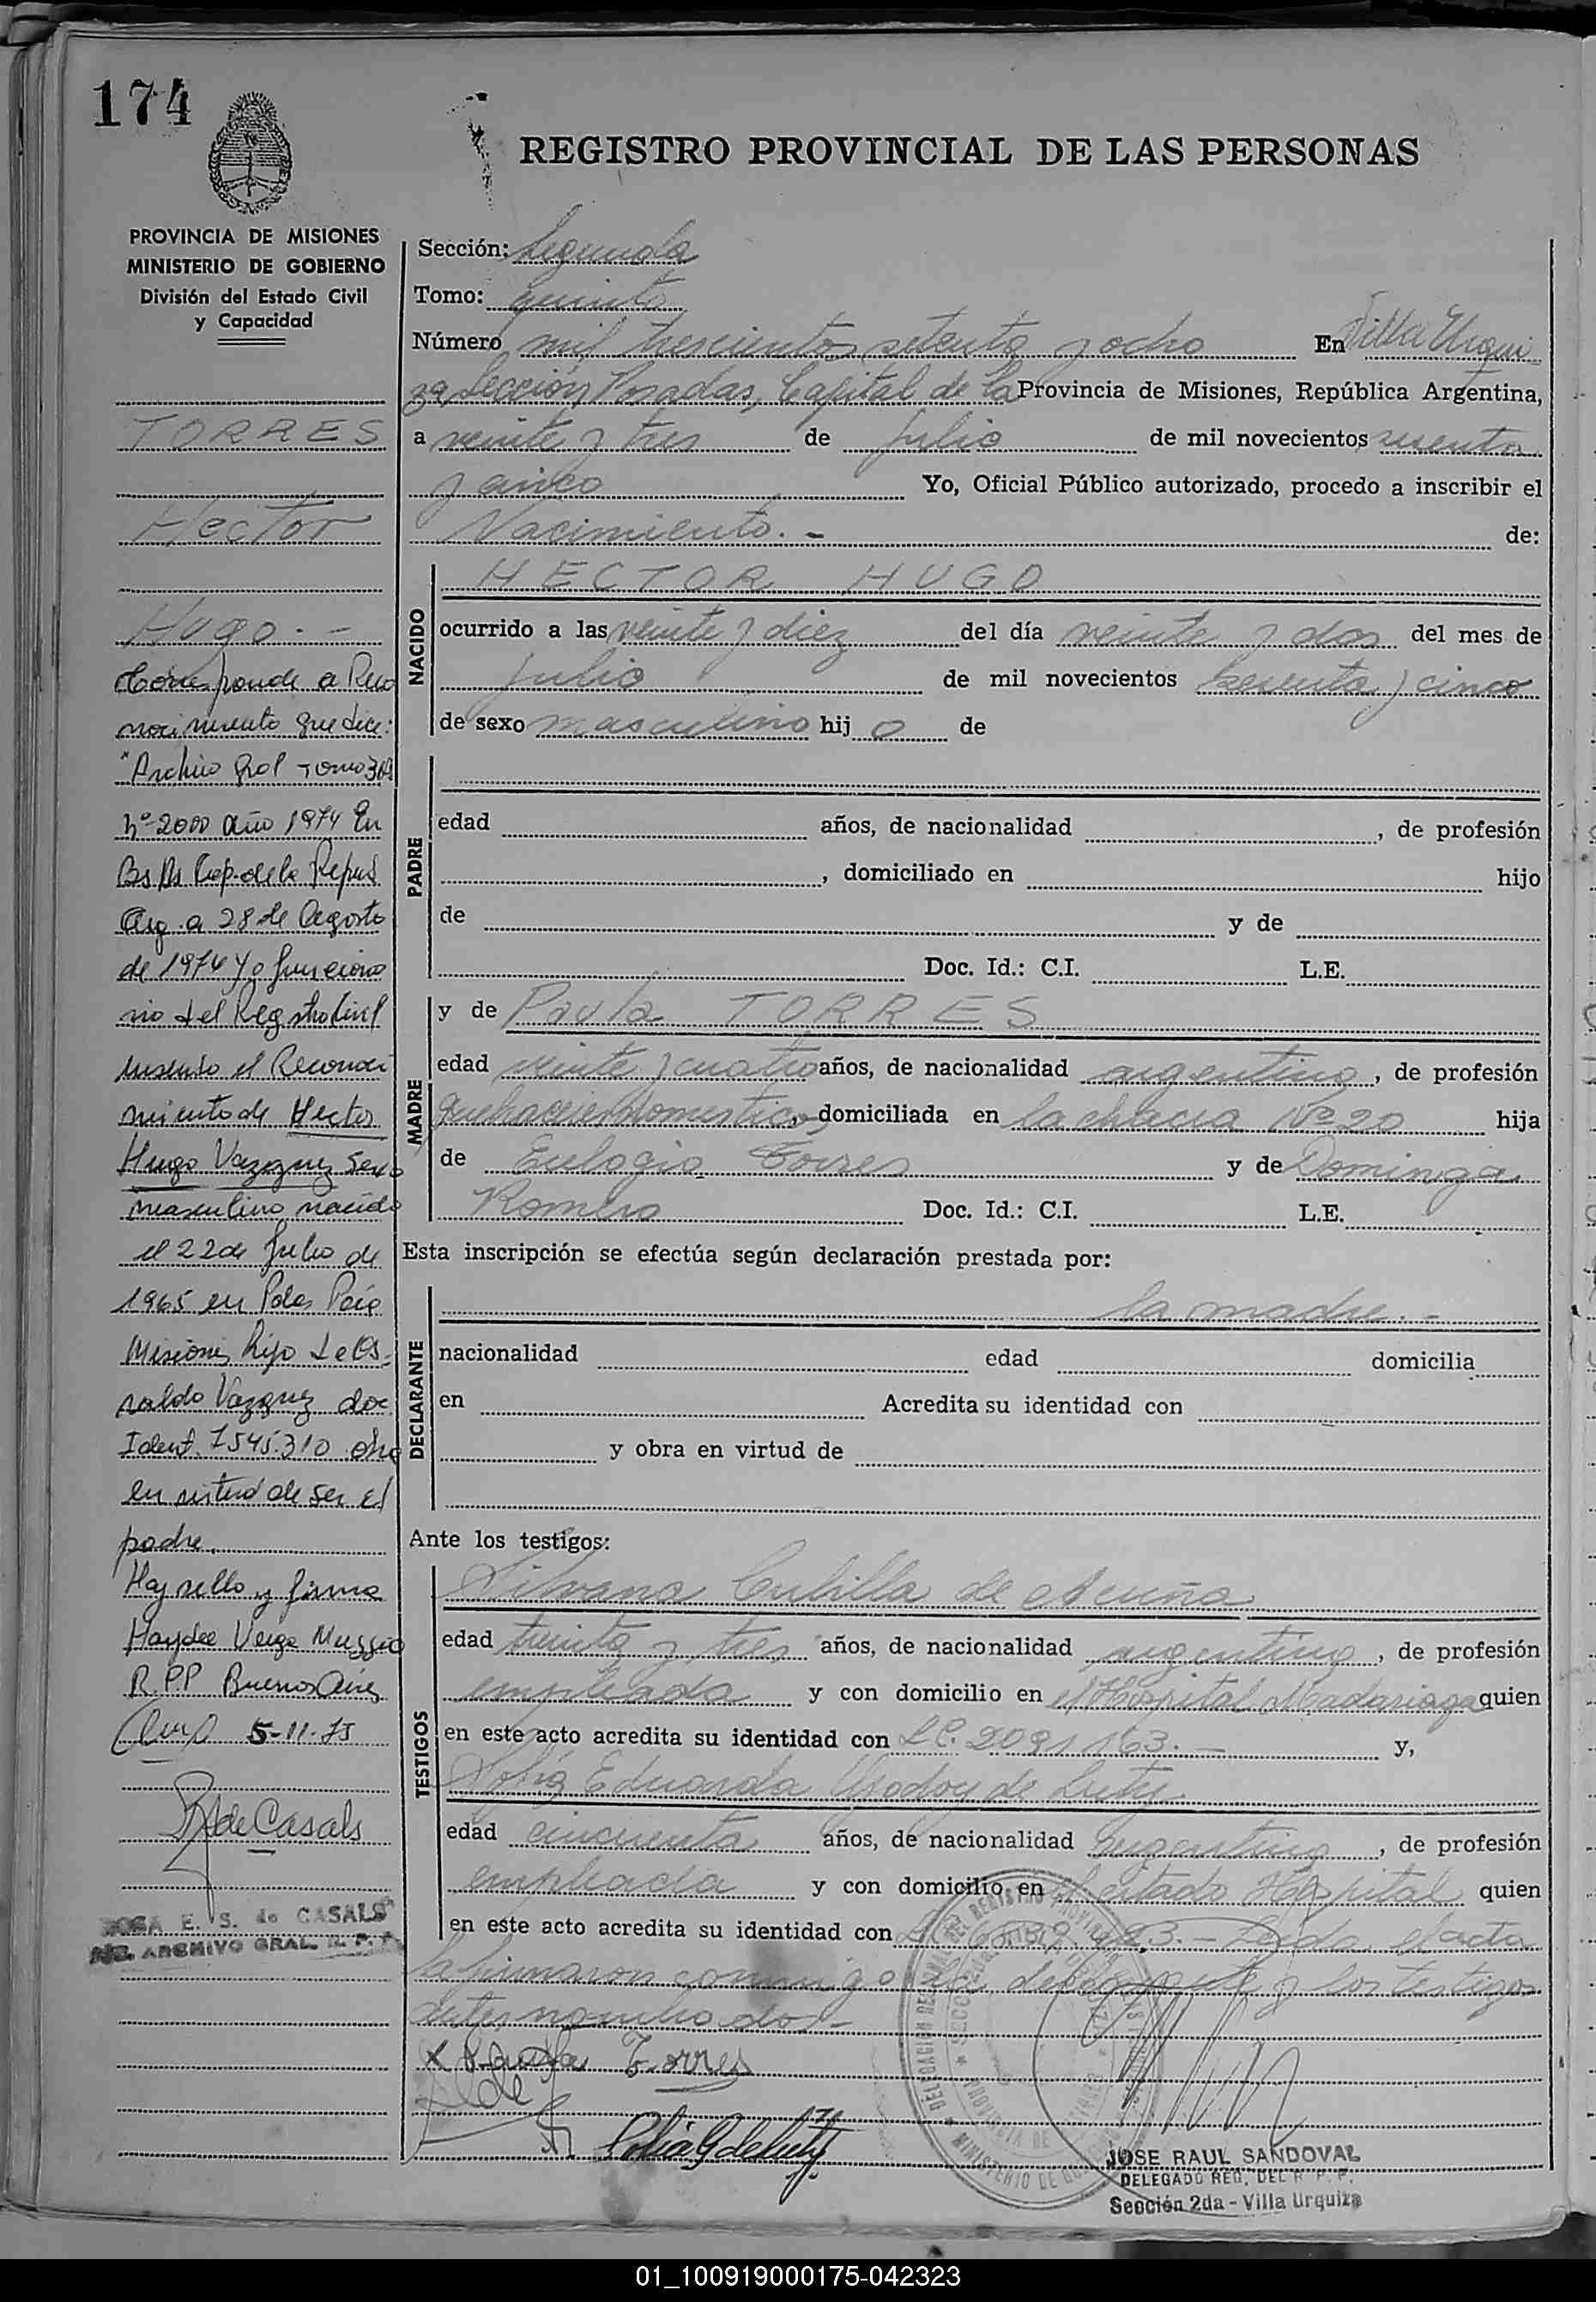 174
REGISTRO PROVINCIAL DE LAS PERSONAS
PROVINCIA DE MISIONES
MINISTERIO DE GOBIERNO
División del Estado Civil
y Capacidad
TORRES
Hector
Hugo. -
Corresponde a Reco
nocimiento que dice:
"Archivo Gral Tomo
nº 2000 año 1974 En
Bs As Cap. de la Repub
Arg. a 28 de Agosto
de 1974 Yo funciona
rio del Registro Civil
inscribo el Reconoci
miento de Hector
Hugo Vazquez sexo
masculino nacido
el 22 de Julio de
1965 en Pdas Pcia
Misiones hijo de Os-
valdo Vazquez doc
Ident. 7545.310 obra
en virtud de ser el
padre.
Hay sello y firma
Haydee Vega Muzzio
R.P.P Buenos Aires
5-11-75
de Casals
ROSA E. S. de CASALS
ARCHIVO GRAL. R. P. P.
Sección: Segunda
Tomo: quinto
Número mil trescientos setenta y ocho En Villa Urqui
za Sección Posadas, Capital de la Provincia de Misiones, República Argentina,
a veinte y tres de julio de mil novecientos sesenta
y cinco Yo, Oficial Público autorizado, procedo a inscribir el
Nacimiento. - de:
NACIDO
HECTOR HUGO
ocurrido a las veinte y diez del día veinte y dos del mes de
julio de mil novecientos sesenta y cinco
de sexo masculino hijo de
PADRE
edad años, de nacionalidad , de profesión
, domiciliado en hijo
de y de
Doc. Id.: C.I. L.E.
MADRE
y de Paula TORRES
edad veinte y cuatro años, de nacionalidad argentina, de profesión
quehaceres domesticos, domiciliada en la chacra Nº 20 hija
de Eulogio Torres y de Dominga
Romero Doc. Id.: C.I. L.E.
Esta inscripción se efectúa según declaración prestada por:
DECLARANTE
la madre. -
nacionalidad edad domicilia
en Acredita su identidad con
y obra en virtud de
Ante los testigos:
TESTIGOS
Silvana Cubilla de Acuña
edad treinta y tres años, de nacionalidad argentina, de profesión
empleada y con domicilio en el Hospital Madariaga quien
en este acto acredita su identidad con L.C. 2091163. - y,
Sofia Eduarda Godoy de Luty
edad cincuenta años, de nacionalidad argentina, de profesión
empleada y con domicilio en el citado Hospital quien
en este acto acredita su identidad con Leida el acta
la firmaron conmigo la declarante y los testigos
antes nombrados -
x Paula Torres
Sofia G de Luty
JOSE RAUL SANDOVAL
DELEGADO REG. DEL R. P. P.
Sección 2da - Villa Urquiza
01_100919000175-042323